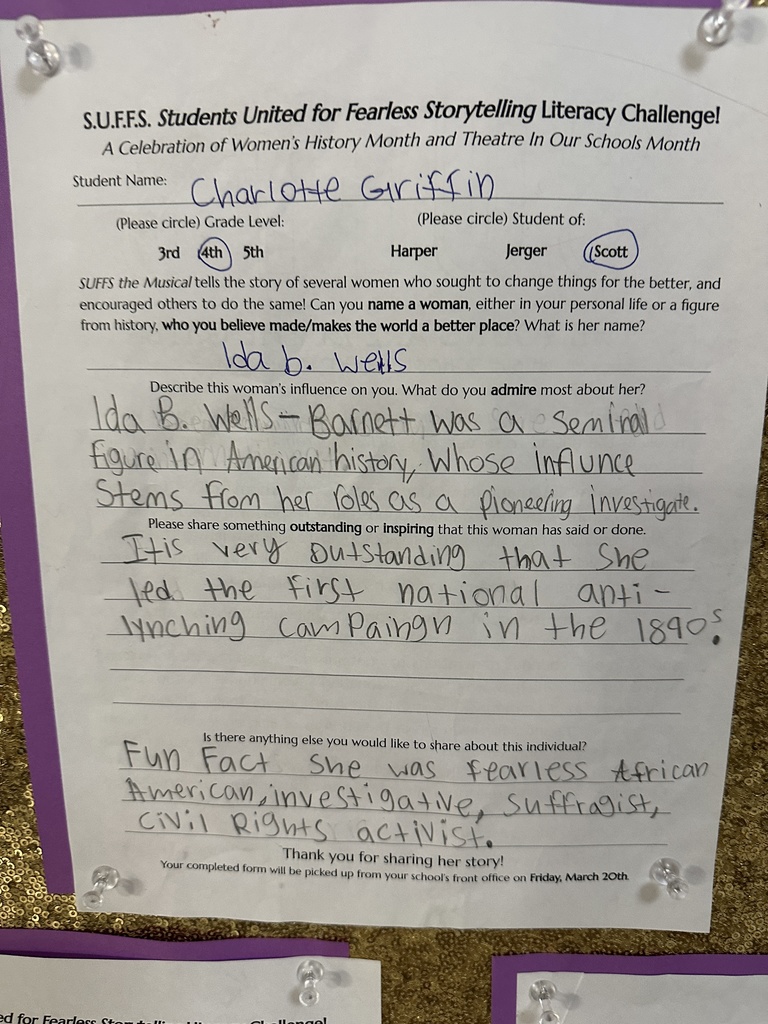 S.U.F.F.S. Students United for Fearless Storytelling Literacy Challenge!
A Celebration of Women's History Month and Theatre In Our Schools Month
Student Name: Charlotte Griffin
(Please circle) Grade Level: (Please circle) Student of:
3rd 4th 5th Harper Jerger Scott
SUFFS the Musical tells the story of several women who sought to change things for the better, and
encouraged others to do the same! Can you name a woman, either in your personal life or a figure
from history, who you believe made/makes the world a better place? What is her name?
Ida b. Wells
Describe this woman's influence on you. What do you admire most about her?
Ida B. Wells-Barnett was a seminal
figure in American history, Whose influnce
Stems from her roles as a pioneering investigate.
Please share something outstanding or inspiring that this woman has said or done.
It is very outstanding that she
led the first national anti-
lynching campaingn in the 1890s.
Is there anything else you would like to share about this individual?
Fun Fact she was fearless African
American, investigative, suffragist,
civil Rights activist.
Thank you for sharing her story!
Your completed form will be picked up from your school's front office on Friday, March 20th.